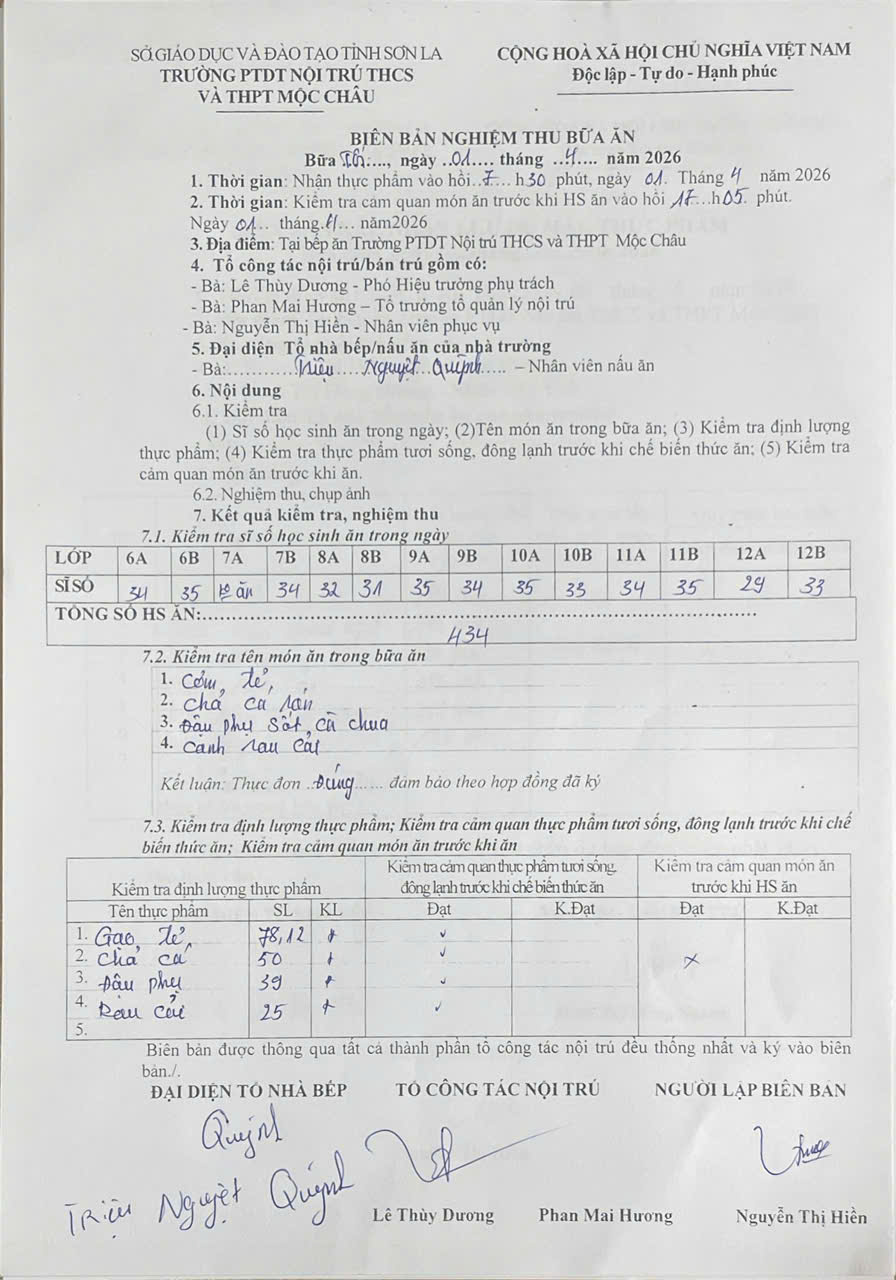 SỞ GIÁO DỤC VÀ ĐÀO TẠO TỈNH SƠN LA
TRƯỜNG PTDT NỘI TRÚ THCS
VÀ THPT MỘC CHÂU
CỘNG HOÀ XÃ HỘI CHỦ NGHĨA VIỆT NAM
Độc lập - Tự do - Hạnh phúc
BIÊN BẢN NGHIỆM THU BỮA ĂN
Bữa ...., ngày ..01.... tháng ..4.... năm 2026
1. Thời gian: Nhận thực phẩm vào hồi..7...h30 phút, ngày 01. Tháng 4 năm 2026
2. Thời gian: Kiểm tra cảm quan món ăn trước khi HS ăn vào hồi 17...h05. phút.
Ngày 01.. tháng.4... năm2026
3. Địa điểm: Tại bếp ăn Trường PTDT Nội trú THCS và THPT Mộc Châu
4. Tổ công tác nội trú/bán trú gồm có:
- Bà: Lê Thùy Dương - Phó Hiệu trưởng phụ trách
- Bà: Phan Mai Hương – Tổ trưởng tổ quản lý nội trú
- Bà: Nguyễn Thị Hiền - Nhân viên phục vụ
5. Đại diện Tổ nhà bếp/nấu ăn của nhà trường
- Bà:............Triệu.....Nguyệt...Quỳnh..... – Nhân viên nấu ăn
6. Nội dung
6.1. Kiểm tra
(1) Sĩ số học sinh ăn trong ngày; (2)Tên món ăn trong bữa ăn; (3) Kiểm tra định lượng
thực phẩm; (4) Kiểm tra thực phẩm tươi sống, đông lạnh trước khi chế biến thức ăn; (5) Kiểm tra
cảm quan món ăn trước khi ăn.
6.2. Nghiệm thu, chụp ảnh
7. Kết quả kiểm tra, nghiệm thu
7.1. Kiểm tra sĩ số học sinh ăn trong ngày
LỚP 6A 6B 7A 7B 8A 8B 9A 9B 10A 10B 11A 11B 12A 12B
SĨ SỐ 34 35 ăn 34 32 31 35 34 35 33 34 35 29 33
TỔNG SỐ HS ĂN:....................................................................................
434
7.2. Kiểm tra tên món ăn trong bữa ăn
1. Cơm tẻ
2. Chả cá rán
3. Đậu phụ sốt cà chua
4. Canh rau cải
Kết luận: Thực đơn ..Đúng...... đảm bảo theo hợp đồng đã ký
7.3. Kiểm tra định lượng thực phẩm; Kiểm tra cảm quan thực phẩm tươi sống, đông lạnh trước khi chế
biến thức ăn; Kiểm tra cảm quan món ăn trước khi ăn
Kiểm tra định lượng thực phẩm
Kiểm tra cảm quan thực phẩm tươi sống,
đông lạnh trước khi chế biến thức ăn
Kiểm tra cảm quan món ăn
trước khi HS ăn
Tên thực phẩm SL KL Đạt K.Đạt Đạt K.Đạt
1. Gạo tẻ 78,12 + ✓
2. Chả cá 50 + ✓ x
3. Đậu phụ 39 + ✓
4. Rau cải 25 + ✓
5.
Biên bản được thông qua tất cả thành phần tổ công tác nội trú đều thống nhất và ký vào biên
bản./.
ĐẠI DIỆN TỔ NHÀ BẾP TỔ CÔNG TÁC NỘI TRÚ NGƯỜI LẬP BIÊN BẢN
Quỳnh
Triệu Nguyệt Quỳnh
Lê Thùy Dương Phan Mai Hương Nguyễn Thị Hiền